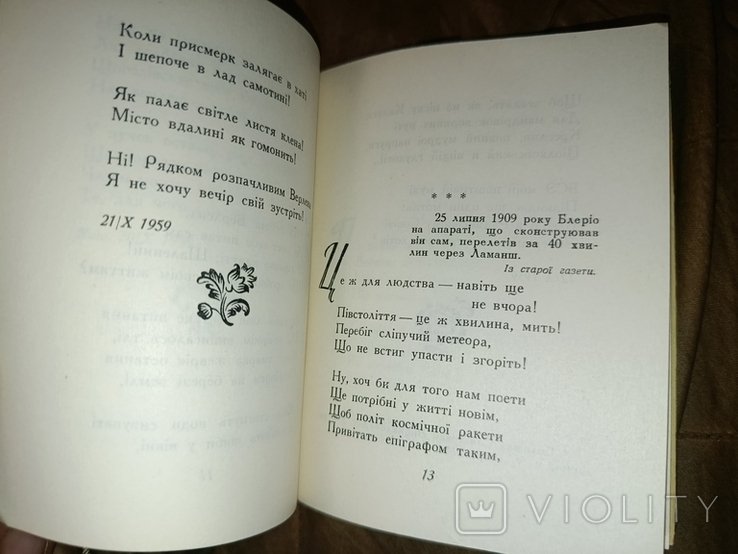 Коли присмерк залягає в хаті
І шепоче в лад самотині!
Як палає світле листя клена!
Місто вдалині як гомонить!
Ні! Рядком розпачливим Верлена
Я не хочу вечір свій зустріть!
21/X 1959
* * *
25 липня 1909 року Блеріо
на апараті, що сконструював
він сам, перелетів за 40 хви-
лин через Ламанш.
Із старої газети.
Це ж для людства — навіть ще
не вчора!
Півстоліття — це ж хвилина, мить!
Перебіг сліпучий метеора,
Що не встиг упасти і згоріть!
Ну, хоч бк для того нам поети
Ще потрібні у житті новім,
Щоб політ космічної ракети
Привітать епіграфом таким,
13
VIOLITY